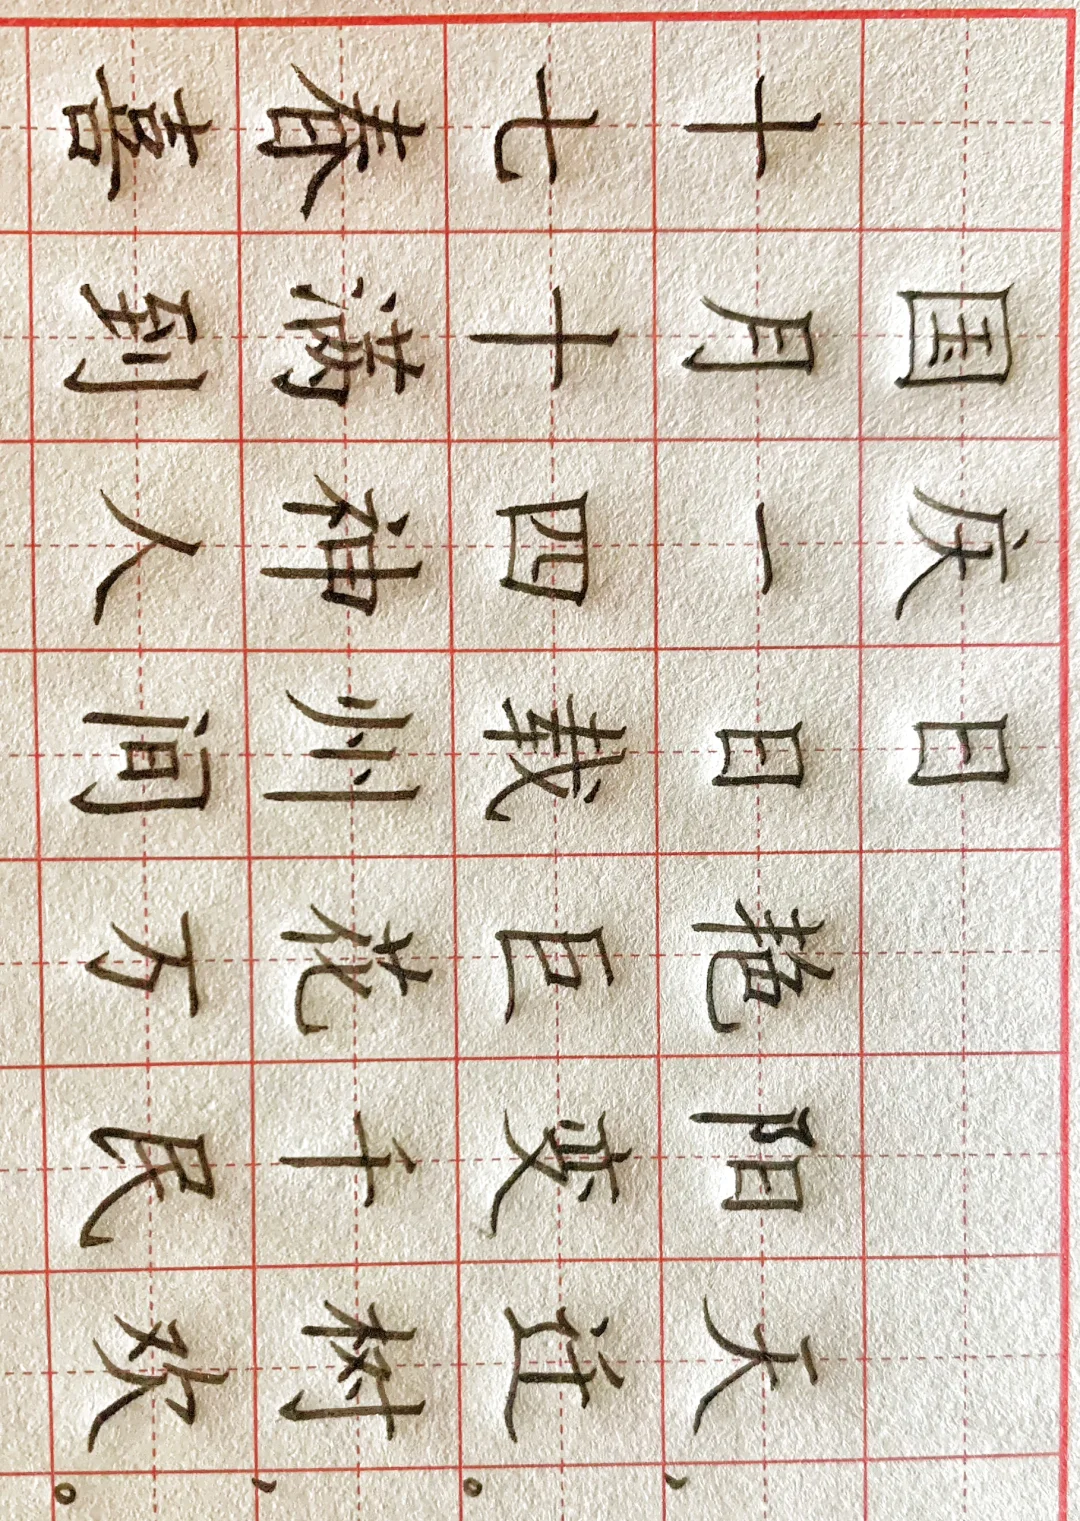 国庆日
十月一日艳阳天，
七十四载巨变迁。
春满神州花千树，
喜到人间万民欢。